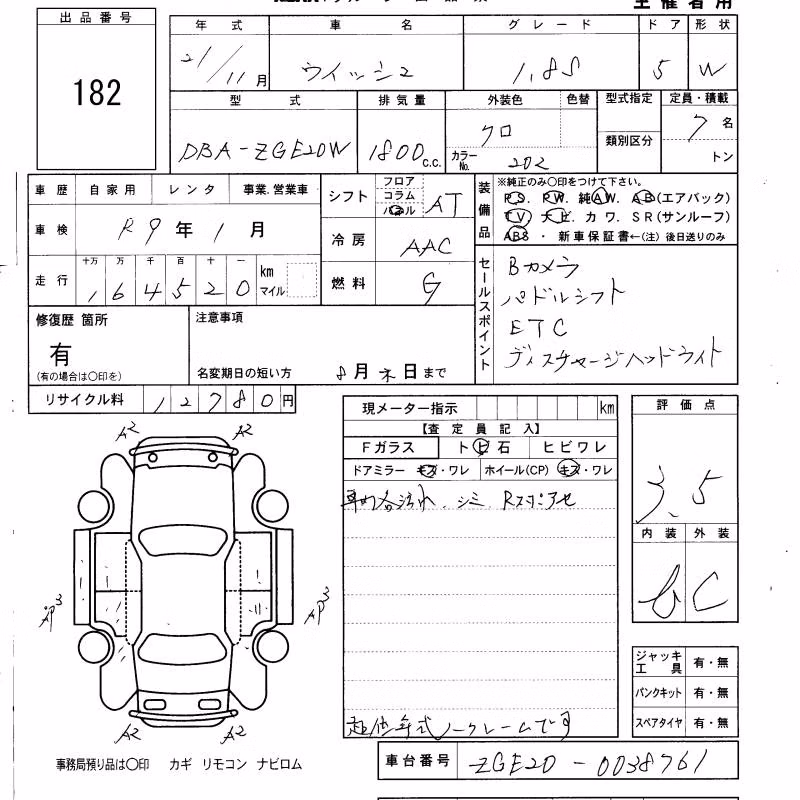 主催者用
出品番号
182
年式 車名 グレード ドア 形状
21/11月 ウイッシュ 1.8S 5 W
型式 排気量 外装色 色替 型式指定 定員・積載
DBA-ZGE20W 1800c.c. クロ 類別区分 7名
カラーNo. 202 トン
車歴 自家用 レンタ 事業.営業車
車検 R9年1月
走行 十万 万 千 百 十 一 km マイル
164520
シフト フロア コラム パネル AT
冷房 AAC
燃料 G
装備品 ※純正のみ○印をつけて下さい。
P.S. P.W. 純A.W. A.B(エアバック)
T.V. ナビ. カワ. SR(サンルーフ)
ABS ・ 新車保証書←(注) 後日送りのみ
セールスポイント
Bカメラ
パドルシフト
ETC
ディスチャージヘッドライト
修復歴 箇所
有
(有の場合は○印を)
注意事項
名変期日の短い方 8月末日まで
リサイクル料 12780円
現メーター指示 km
【査定員記入】
Fガラス ト ビ 石 ヒビワレ
ドアミラー キズ・ワレ ホイール(CP) キズ・ワレ
シミ
超低年式ノークレームです
評価点
3.5
内装 外装
b C
A2 A2
AP3 AP3
A2 A2
ジャッキ工具 有・無
パンクキット 有・無
スペアタイヤ 有・無
事務局預り品は○印 カギ リモコン ナビロム
車台番号 ZGE20-0038761